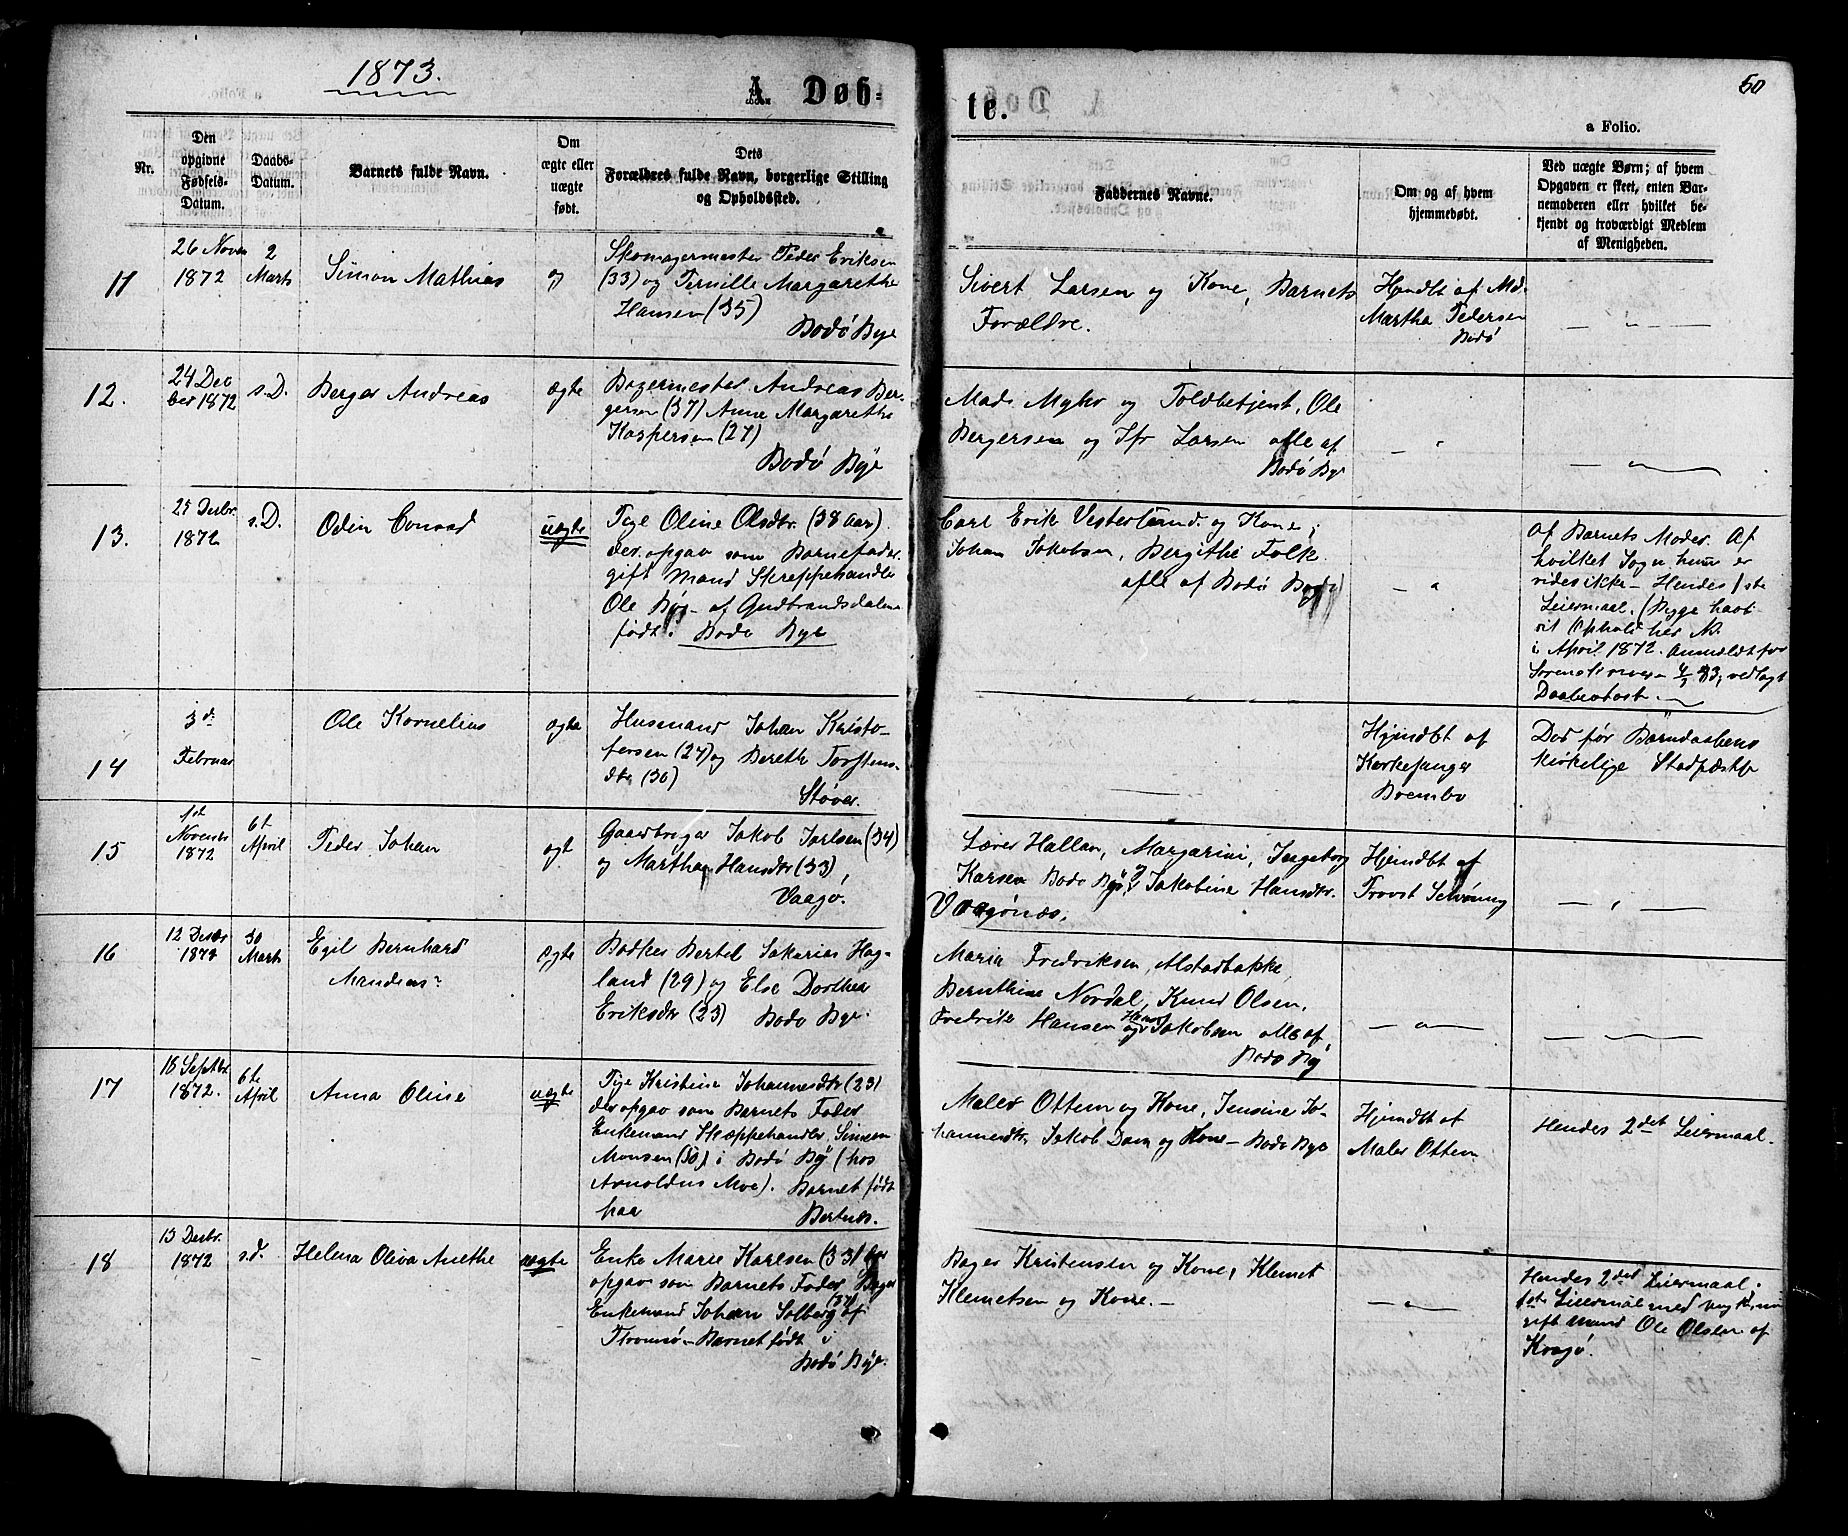 1873.
A Døb-
Nr.
Den
opgivne
Fødsels-
Datum.
Daabs-
Datum.
Barnets fulde Navn.
Om
ægte eller
uægte
født.
Dets
Forældres fulde Navn, borgerlige Stilling
og Opholdssted.
11
26 Novem
1872
2
Marts
Simon Mathias
Skomagermester Peder Eriksen
(33) og Pernille Margarethe
Hansen (35)
Bodø Bye
12.
24 Dec
ber 1872
s. D.
Berger Andreas
ægte
Bagermester Andreas Ber-
gersen (37) Anne Margarethe
Kaspersen (27)
Bodø Bye
13.
25 Decbr.
1872
s. D.
Odin Conrad
uægte
Pige Oline Olsdtr. (38 Aar).
der opgav som Barnefader
gift Mand Skreppehandler
Ole af Gudbrandsdalen
født: Bodø Bye
14
3d
Februar
Ole Kornelius
ægte
Husmand Johan Kristo-
fersen (27) og Berethe Torstens-
dtr (30)
Støver.
15
1st
Novemb
1872
6t
April
Peder Johan
ægt
Gaardbruger Jakob Karlsen (34)
og Martha Hansdtr (33),
Vaagø.
16
12 Decbr
1872
30
Marts
Egil Bernhard
Mandius?
ægte
Bødker Bertel Sakarias Hag-
land (29) og Else Dorthea
Eriksdtr (23) Bodø Bye.
17
18 Septbr
1872.
6te
April
Anna Oline
uægte
Pige Kristine Johannesdtr (23)
der opgav som Barnets Fader
Enkemand Skreppehandler Simon
Monsen (30) i Bodø By (hos
Arnoldus Moe). Barnet født
paa Bertnes.
18
13 Decbr.
1872
s. d.
Helena Oliva Anethe
uægte
Enke Marie Karlsen (33) der
opgav som Barnets Fader Bager
Enkemand Johan Solberg (37) af
Tromsø – Barnet født i
Bodø Bye.
te.
50
a Folio.
Faddernes Navne.
Om og af hvem
hjemmedøbt.
Ved uægte Børn; af hvem
Opgaven er skeet, enten Bar-
nemoderen eller hvilket be-
kjendt og troværdigt Medlem
af Menigheden.
Sivert Larsen og Kone, Barnets
Forældre.
Hjmdbt af Md.
Martha Pedersen
Bodø
Mads Myhr og Toldbetjent, Ole
Bergersen og Jfr Larsen alle af
Bodø Bye
Carl Erik Vesterlund og Kone;
Johan Jakobsen, Bergithe Falk.
alle af Bodø Bye
Af Barnets Moder. Af
hvilket Sogn hun er
vides ikke – Hendes 1ste
Leiermaal.
Ophold her
i April 1872. Anmeldt for
vedlagt
Daabsattest.
Hjmdbt af
Kirkesanger
Brembo
Død før Barndaabens
kirkelige Stadfæstelse
Lærer Hallan, Margarini, Ingeborg
Karsen Bodø By og Jakobine Hansdtr.
Vaagønæs.
Hjmdbt af
Provst Schøning
Maria Fredriksen, Alstadbakke,
Bernthine Nordal, Knud Olsen,
Fredrik Hansen og Hans Jakobsen alle af
Bodø By
Maler Ottem og Kone, Jensine Jo-
hannesdtr, Jakob Dam og Kone – Bodø Bye
Hjmdbt af
Maler Ottem.
Hendes 2det Leiermaal.
Bager Kristensen og Kone, Klemet
Klemetsen og Kone. –
Hendes 2det Leiermaal.
1ste Leiermaal med
gift Mand Ole Olsen af